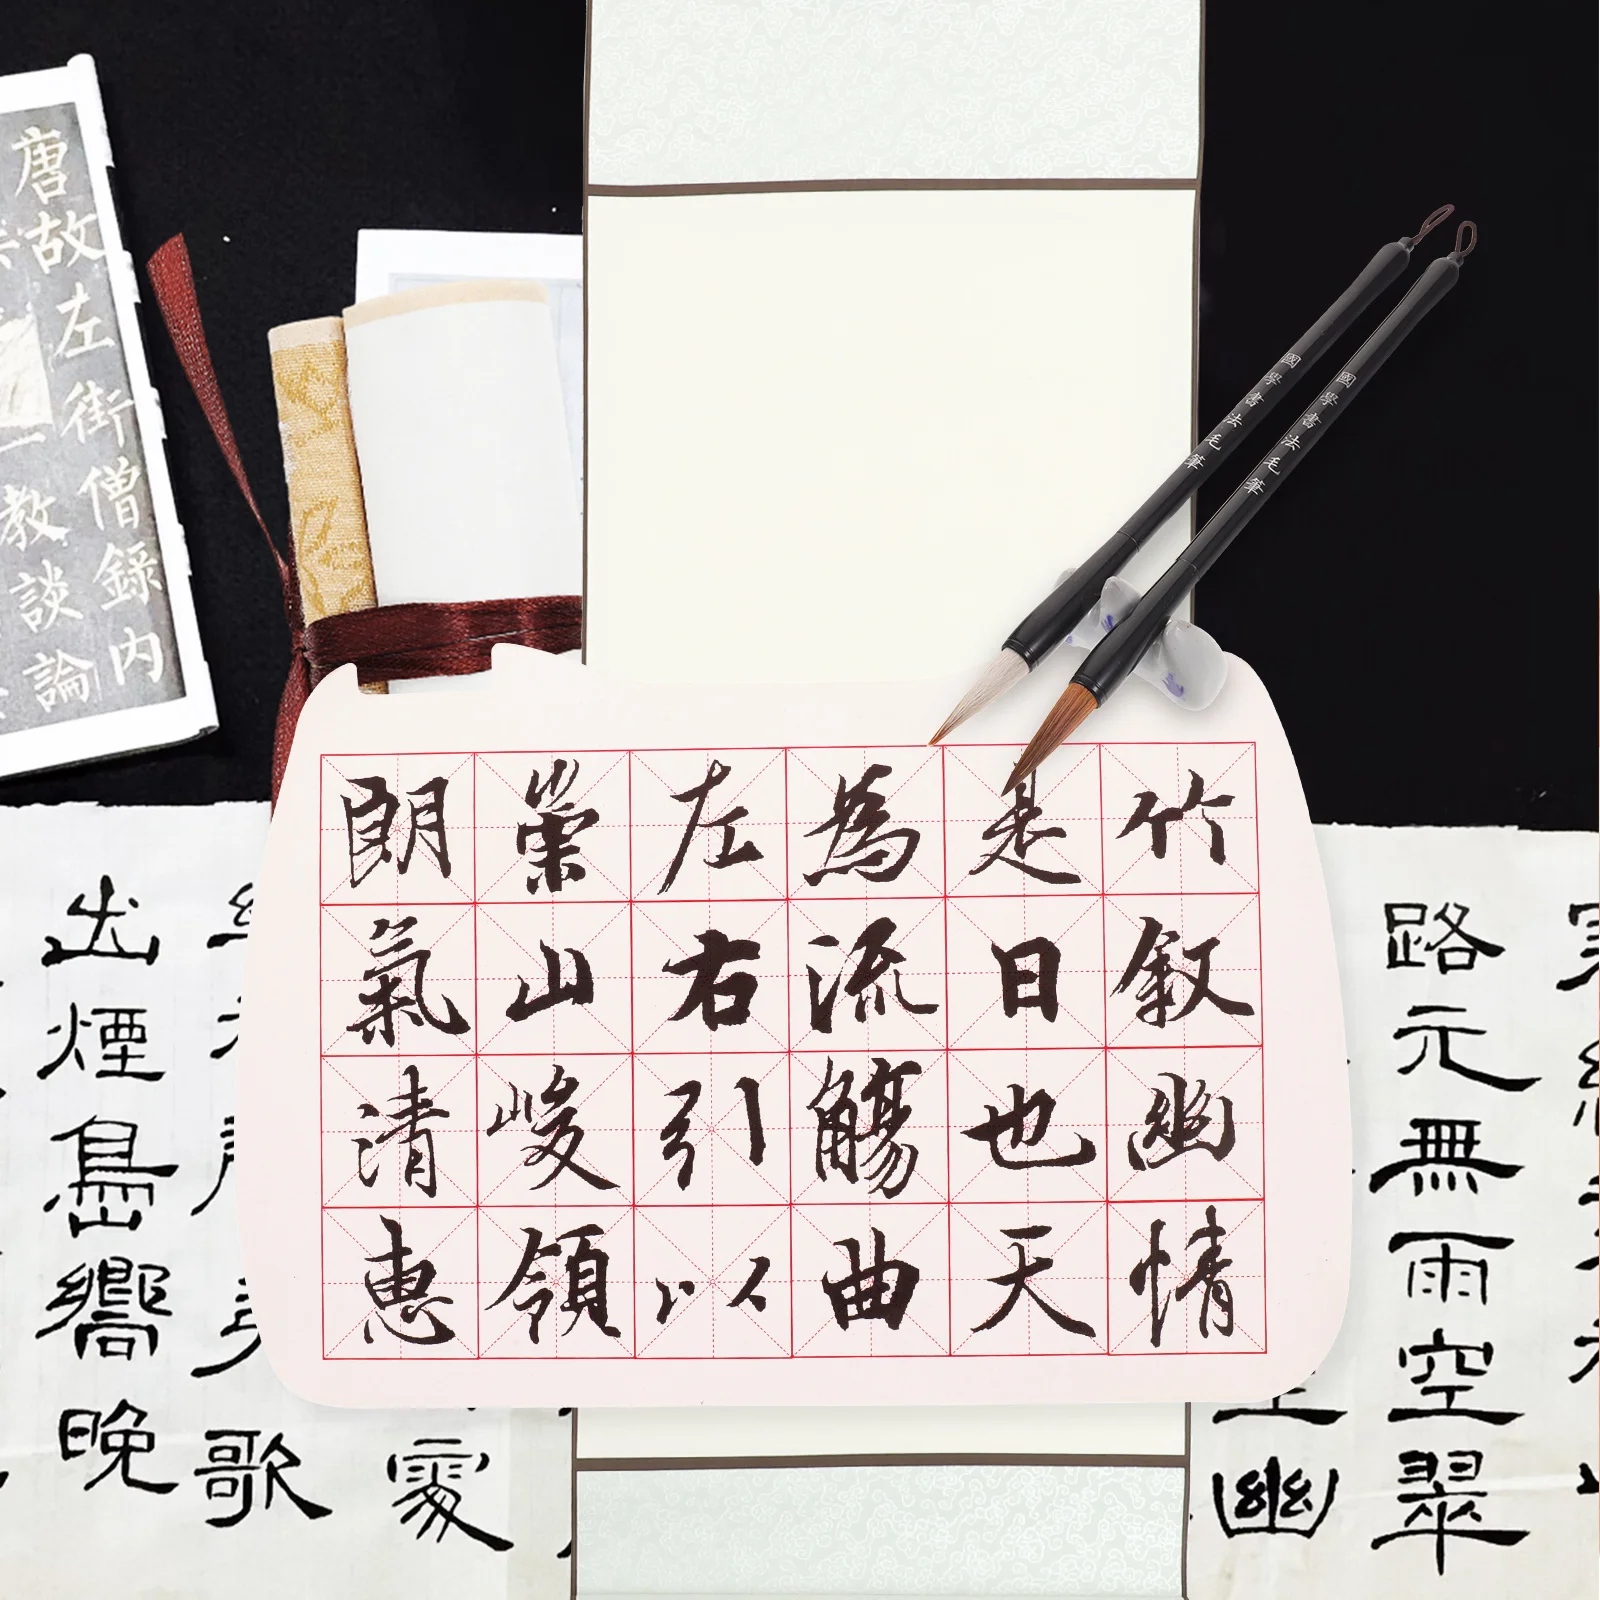 唐故左街僧錄內
教談論
國學書法毛筆
國學書法毛筆
竹叙幽情
是日也天
為流觴曲
左右引以
崇山峻領
朗氣清惠
路元無雨空翠
幽
歌
出煙島嚮晚